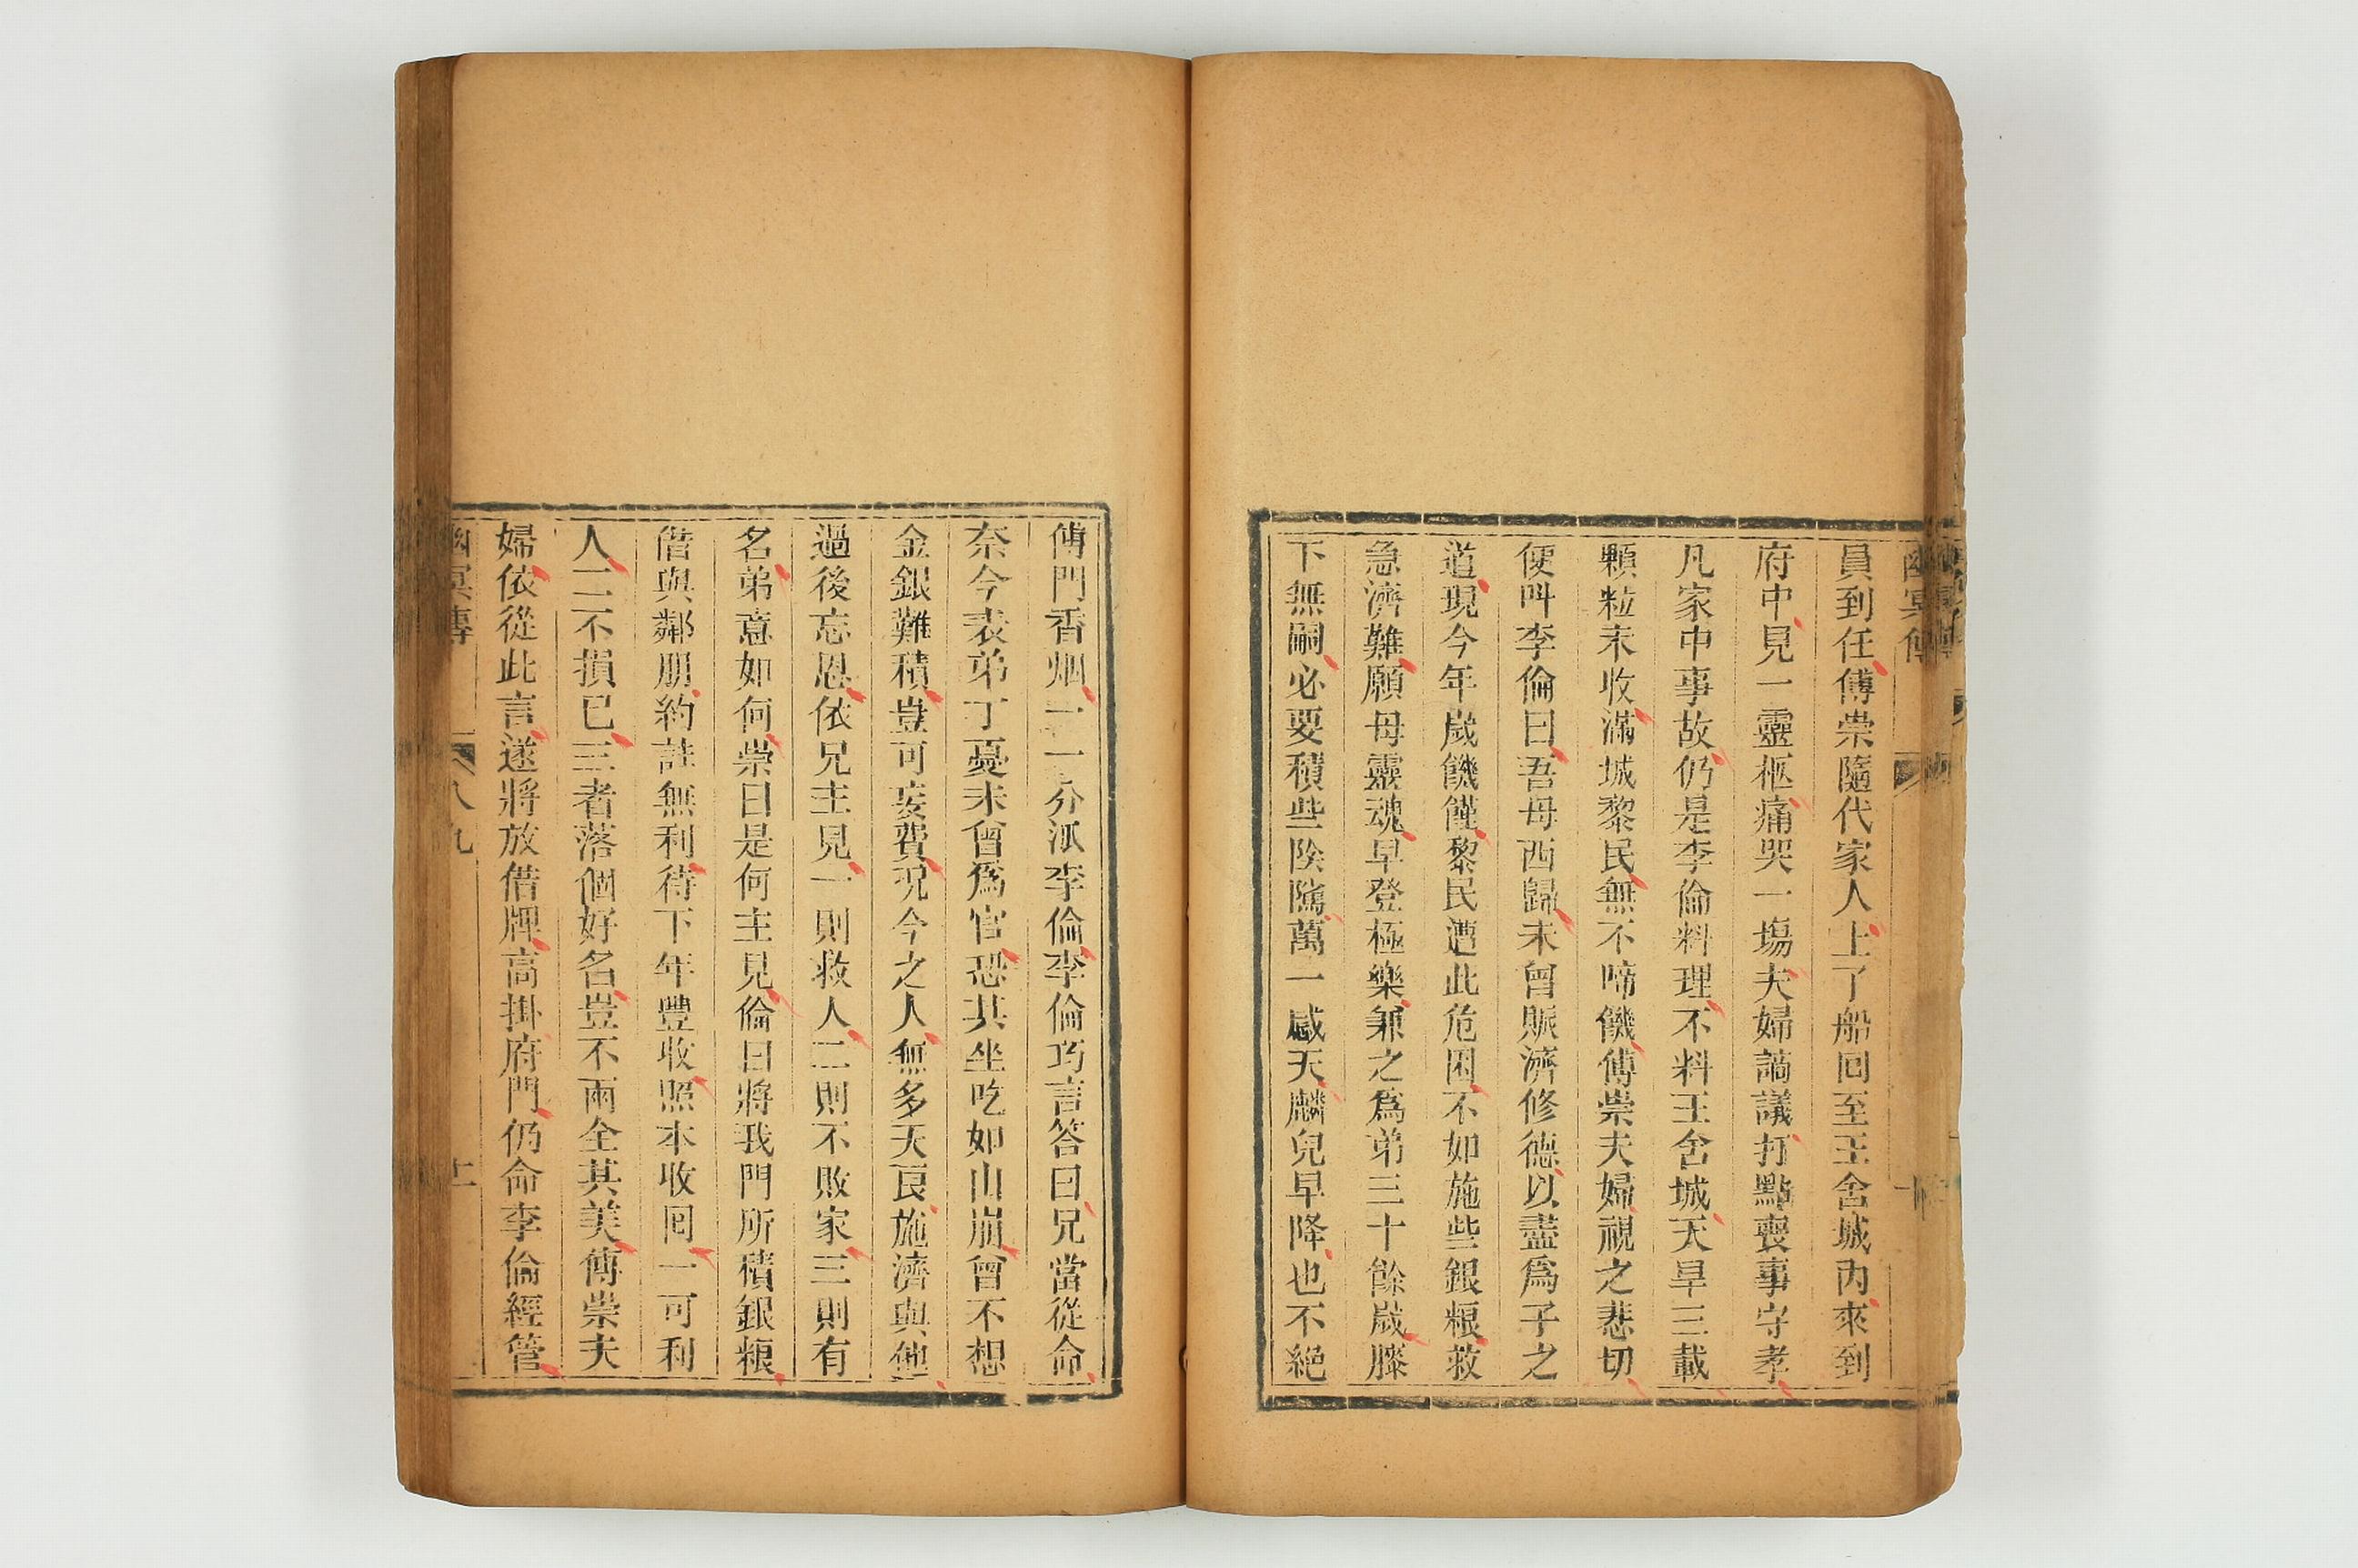 員到任傅崇隨代家人上了船回至王舍城內來到
府中見一靈柩痛哭一塲夫婦謪議打點喪事守孝
凡家中事故仍是李倫料理不料王舍城天旱三載
顆粒未收滿城黎民無不啼饑傅崇夫婦視之悲切
便呌李倫曰吾母西歸未曾賑濟修德以盡爲子之
道現今年歲饑饉黎民遭此危困不如施些銀粮救
急濟難願母靈魂早登極樂兼之爲弟三十餘歲膝
下無嗣必要積些陰隲萬一感天麟兒早降也不絕
傅門香烟一一分派李倫李倫巧言答曰兄當從命
奈今表弟丁憂未曾爲官恐其坐吃如山崩曾不想
金銀難積豈可妄費况今之人無多天良施濟與他
過後忘恩依兄主見一則救人二則不敗家三則有
名弟意如何崇曰是何主見倫曰將我門所積銀粮
借與鄰朋約註無利待下年豐收照本收囘一可利
人二不損已三者落個好名豈不兩全其美傅崇夫
婦依從此言遂將放借牌高掛府門仍命李倫經管
幽冥傳 八九 上